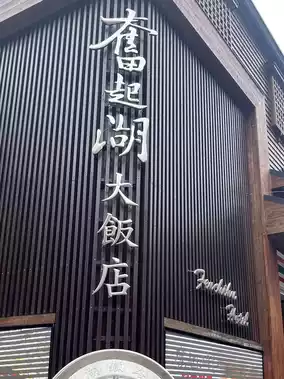 奮起湖大飯店
Fenchihu
Hotel.